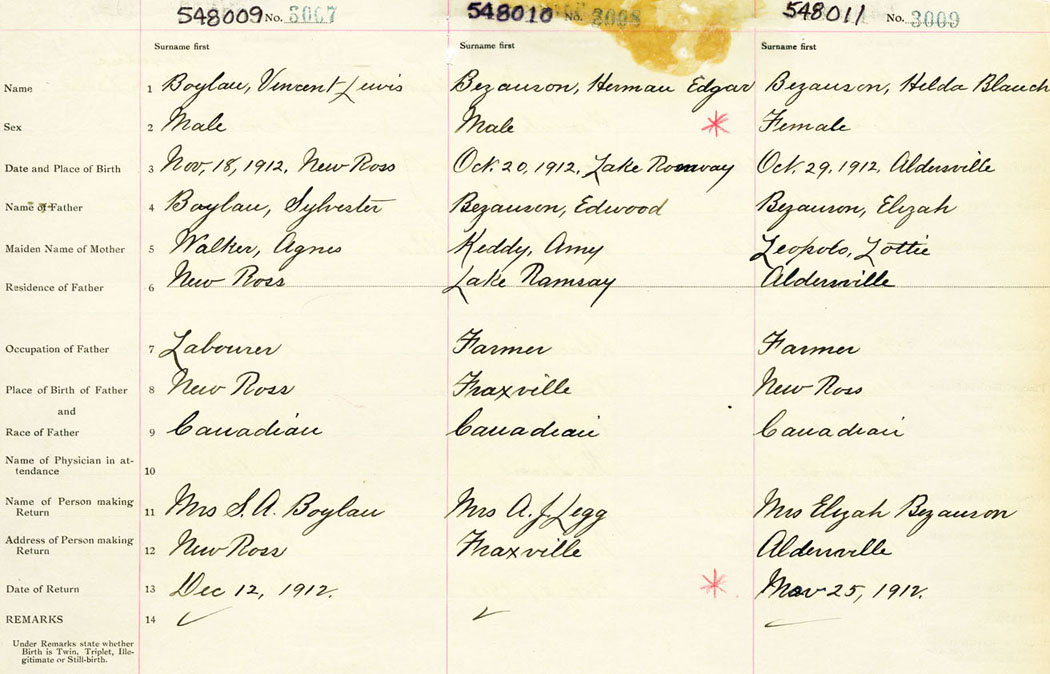 548009 No. 3007 548010 No. 3008 548011 No. 3009
Surname first Surname first Surname first
Name 1 Boylan, Vincent Lewis Bezanson, Herman Edgar Bezanson, Hilda Blanch
Sex 2 Male Male * Female
Date and Place of Birth 3 Nov, 18, 1912, New Ross Oct. 20, 1912, Lake Ramsay Oct. 29, 1912, Aldersville
Name of Father 4 Boylan, Sylvester Bezanson, Edwood Bezanson, Elizah
Maiden Name of Mother 5 Walker, Agnes Keddy, Amy Leopolo, Lottie
Residence of Father 6 New Ross Lake Ramsay Aldersville
Occupation of Father 7 Labourer Farmer Farmer
Place of Birth of Father 8 New Ross Fraxville New Ross
and
Race of Father 9 Canadian Canadian Canadian
Name of Physician in at-
tendance 10
Name of Person making
Return 11 Mrs S. A. Boylan Mrs A. J. Legg Mrs Elizah Bezanson
Address of Person making
Return 12 New Ross Fraxville Aldersville
Date of Return 13 Dec 12, 1912. * Nov 25, 1912.
REMARKS 14 ✓ ✓ ✓
Under Remarks state whether
Birth is Twin, Triplet, Ille-
gitimate or Still-birth.